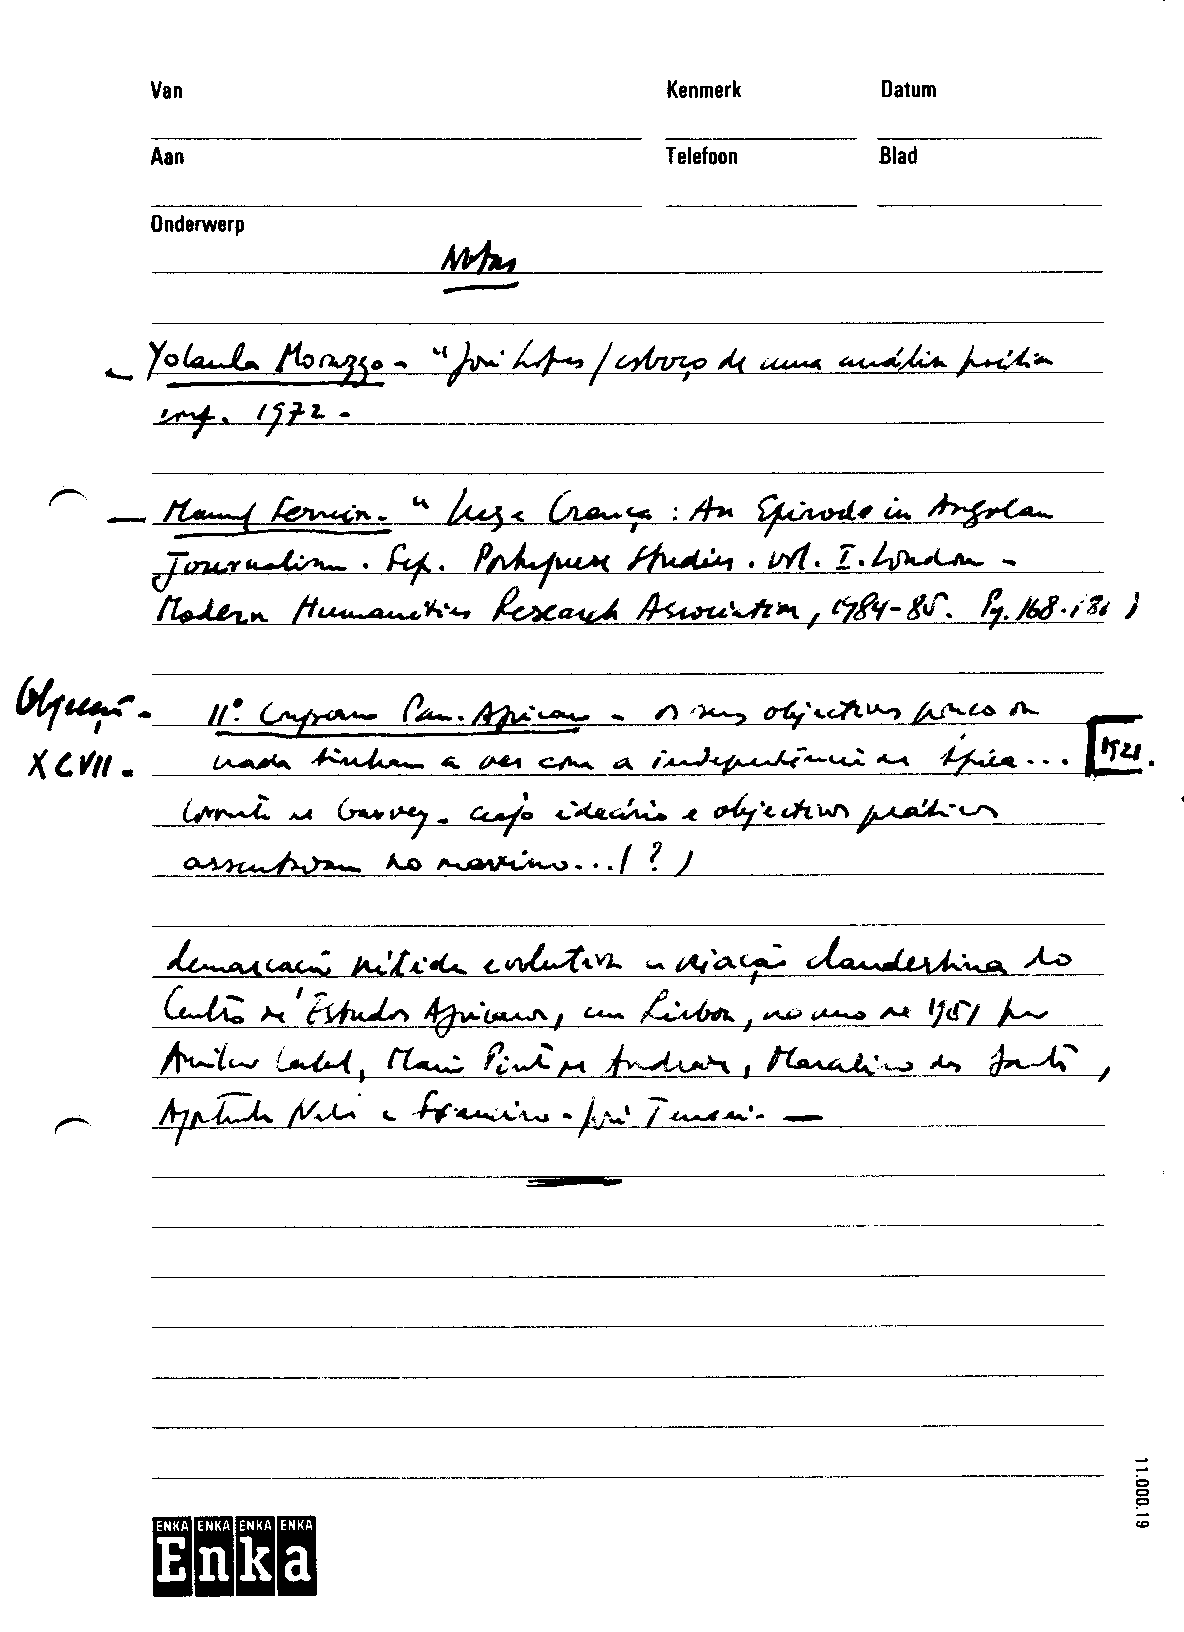 Van
Kenmerk
Datum
Aan
Telefoon
Blad
Onderwerp
Notas
- Yolanda Morazzo - "José Lopes / esboço de uma análise poética
imp. 1972 -
- Manuel Ferreira - "Luz e Crença : An Episode in Angolan
Journalism. Sep. Portuguese Studies. vol. I. London -
Modern Humanities Research Association, 1984-85. Pg. 168-181)
Objecção -
XCVII -
IIº. Congresso Pan-Africano - os seus objectivos pouco ou
nada tinham a ver com a independência de África...
1921.
Garvey - cujo ideário e objectivos práticos
assentavam no mesmo...(?)
demarcação nítida evolutiva a criação clandestina do
Centro de Estudos Africanos, em Lisboa, no ano de 1951 por
Amílcar Cabral, Mário Pinto de Andrade, Marcelino dos Santos,
Agostinho Neto e Francisco-José Tenreiro. —
ENKA ENKA ENKA ENKA
Enka
11.000.19